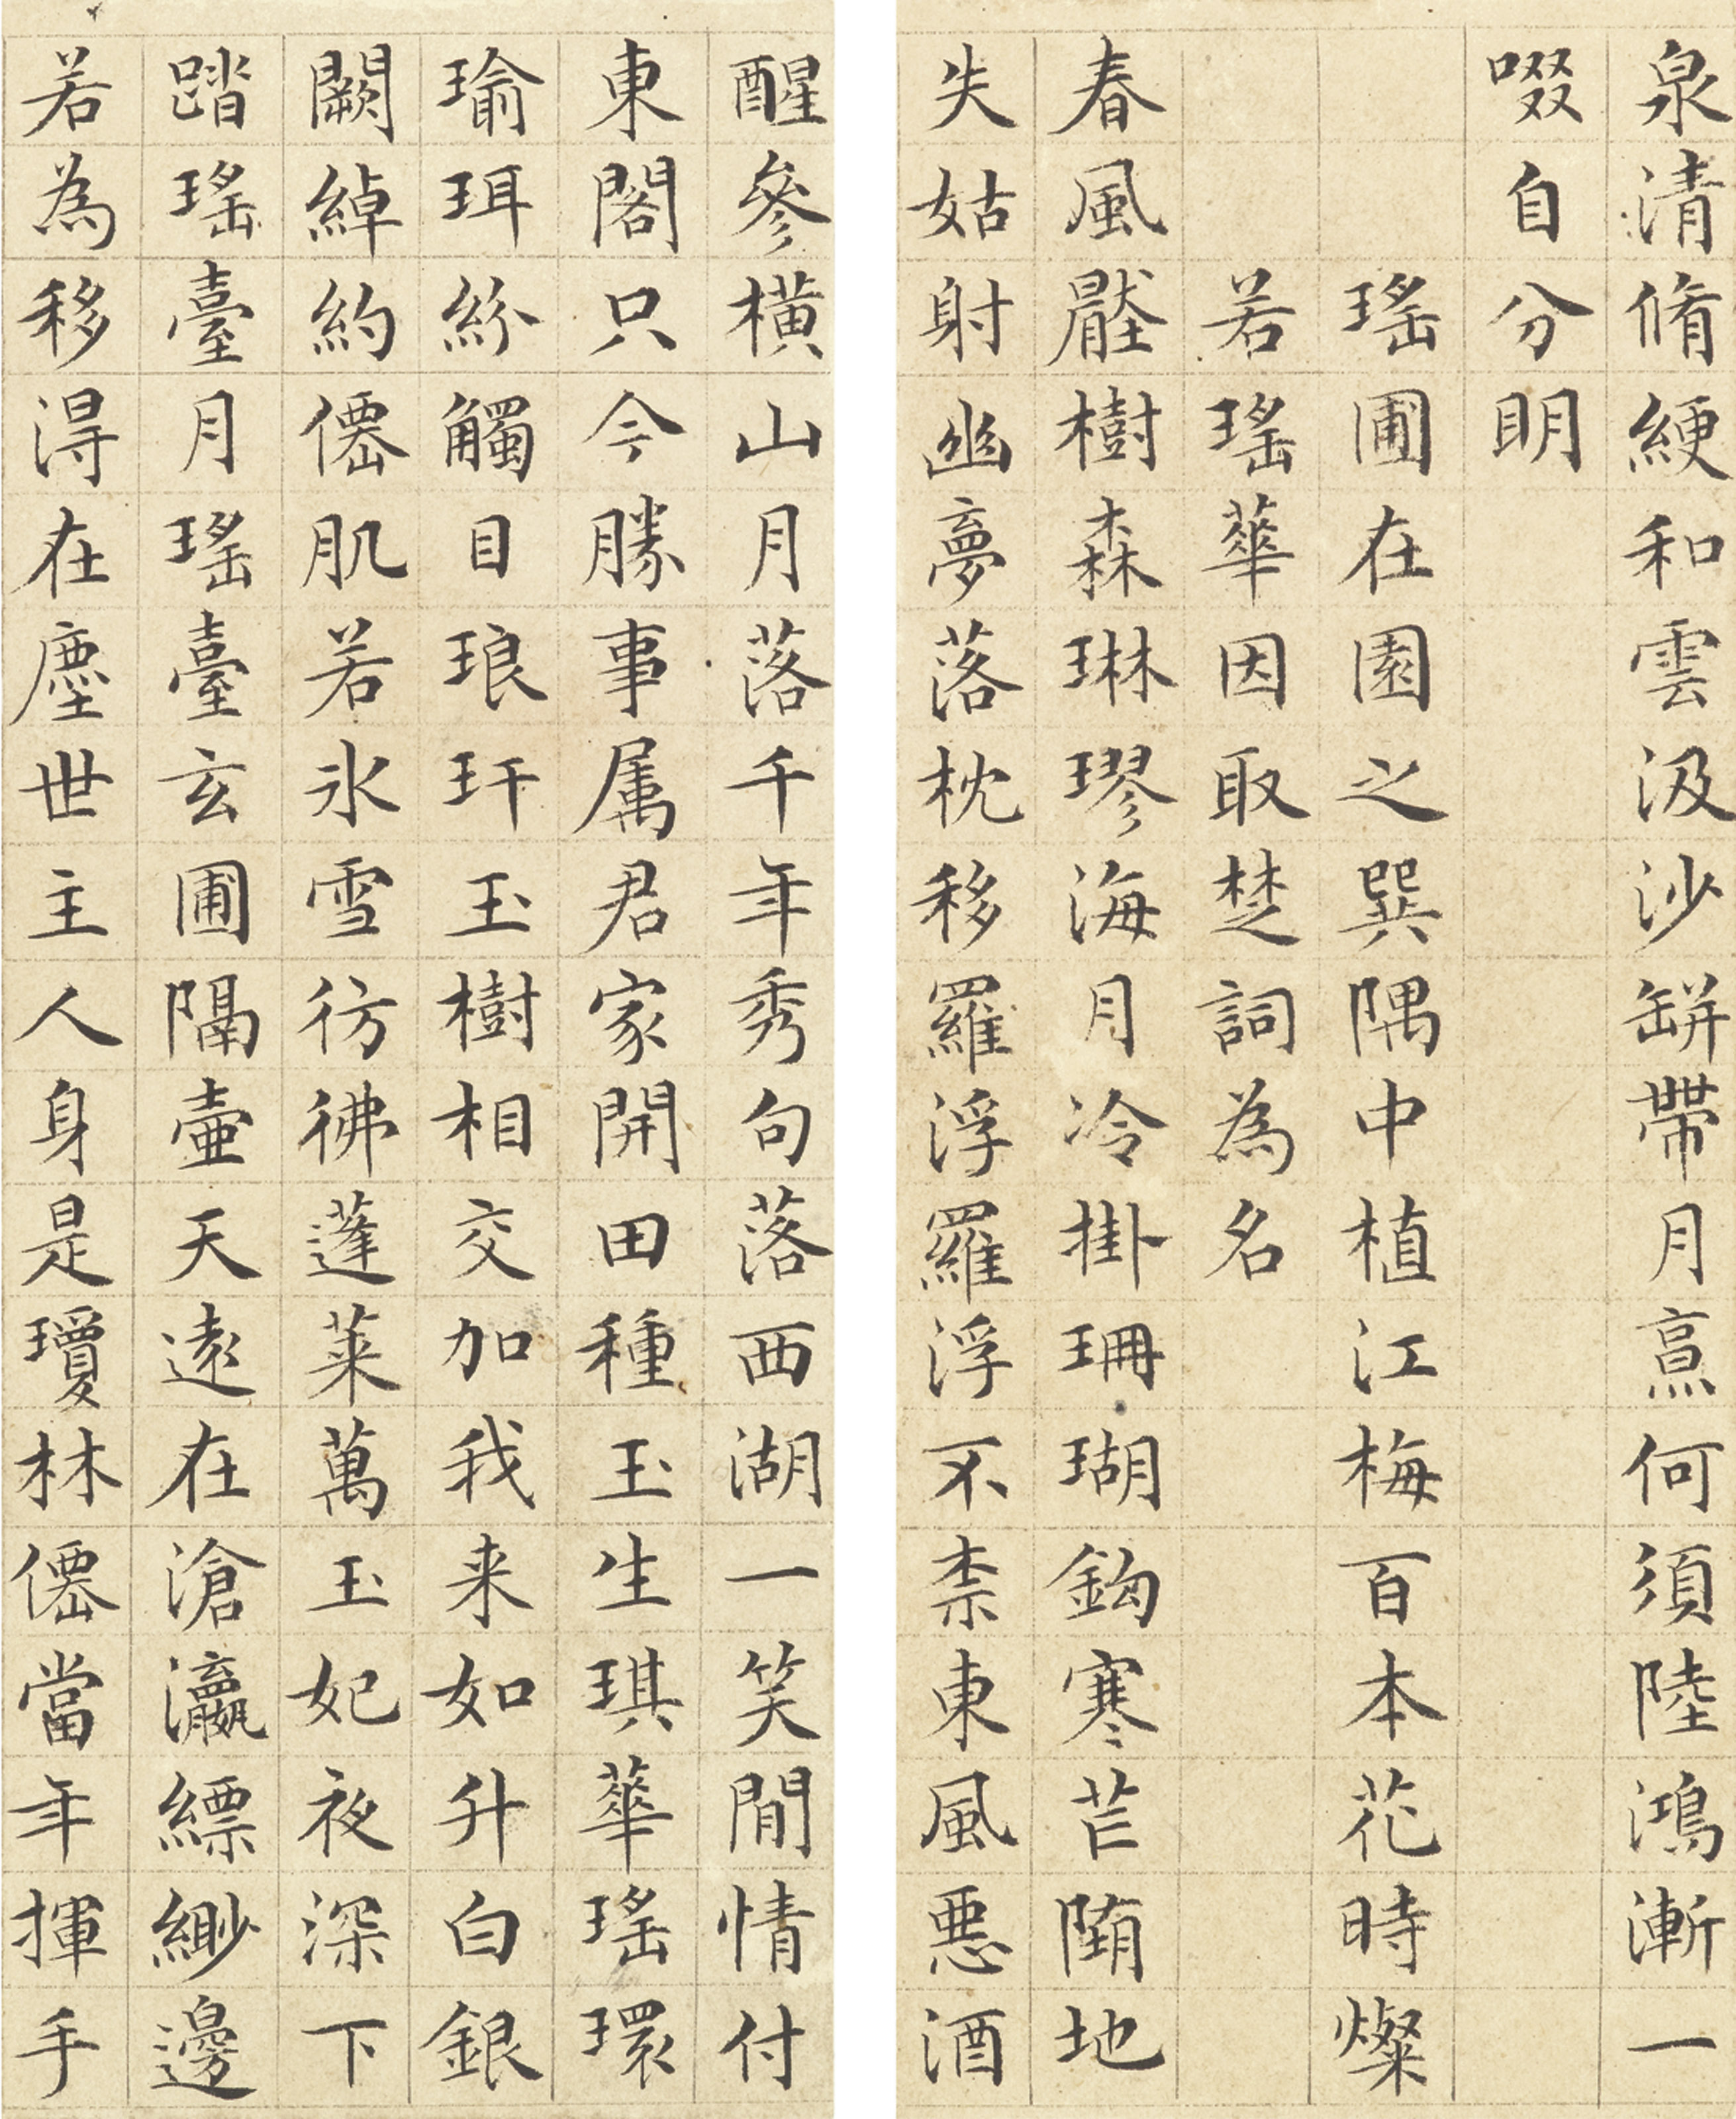 泉清脩綆和雲汲沙缾帶月烹何須陸鴻漸一
啜自分明
瑤圃在園之巽隅中植江梅百本花時燦
若瑤華因取楚詞為名
春風壓樹森琳璆海月冷掛珊瑚鈎寒芒墮地
失姑射幽夢落枕移羅浮羅浮不柰東風惡酒
醒參橫山月落千年秀句落西湖一笑閒情付
東閣只今勝事属君家開田種玉生琪華瑤環
瑜珥紛觸目琅玕玉樹相交加我来如升白銀
闕綽約僊肌若氷雪彷彿蓬莱萬玉妃夜深下
踏瑤臺月瑤臺玄圃隔壷天遠在滄瀛縹緲邊
若為移得在塵世主人身是瓊林僊當年揮手